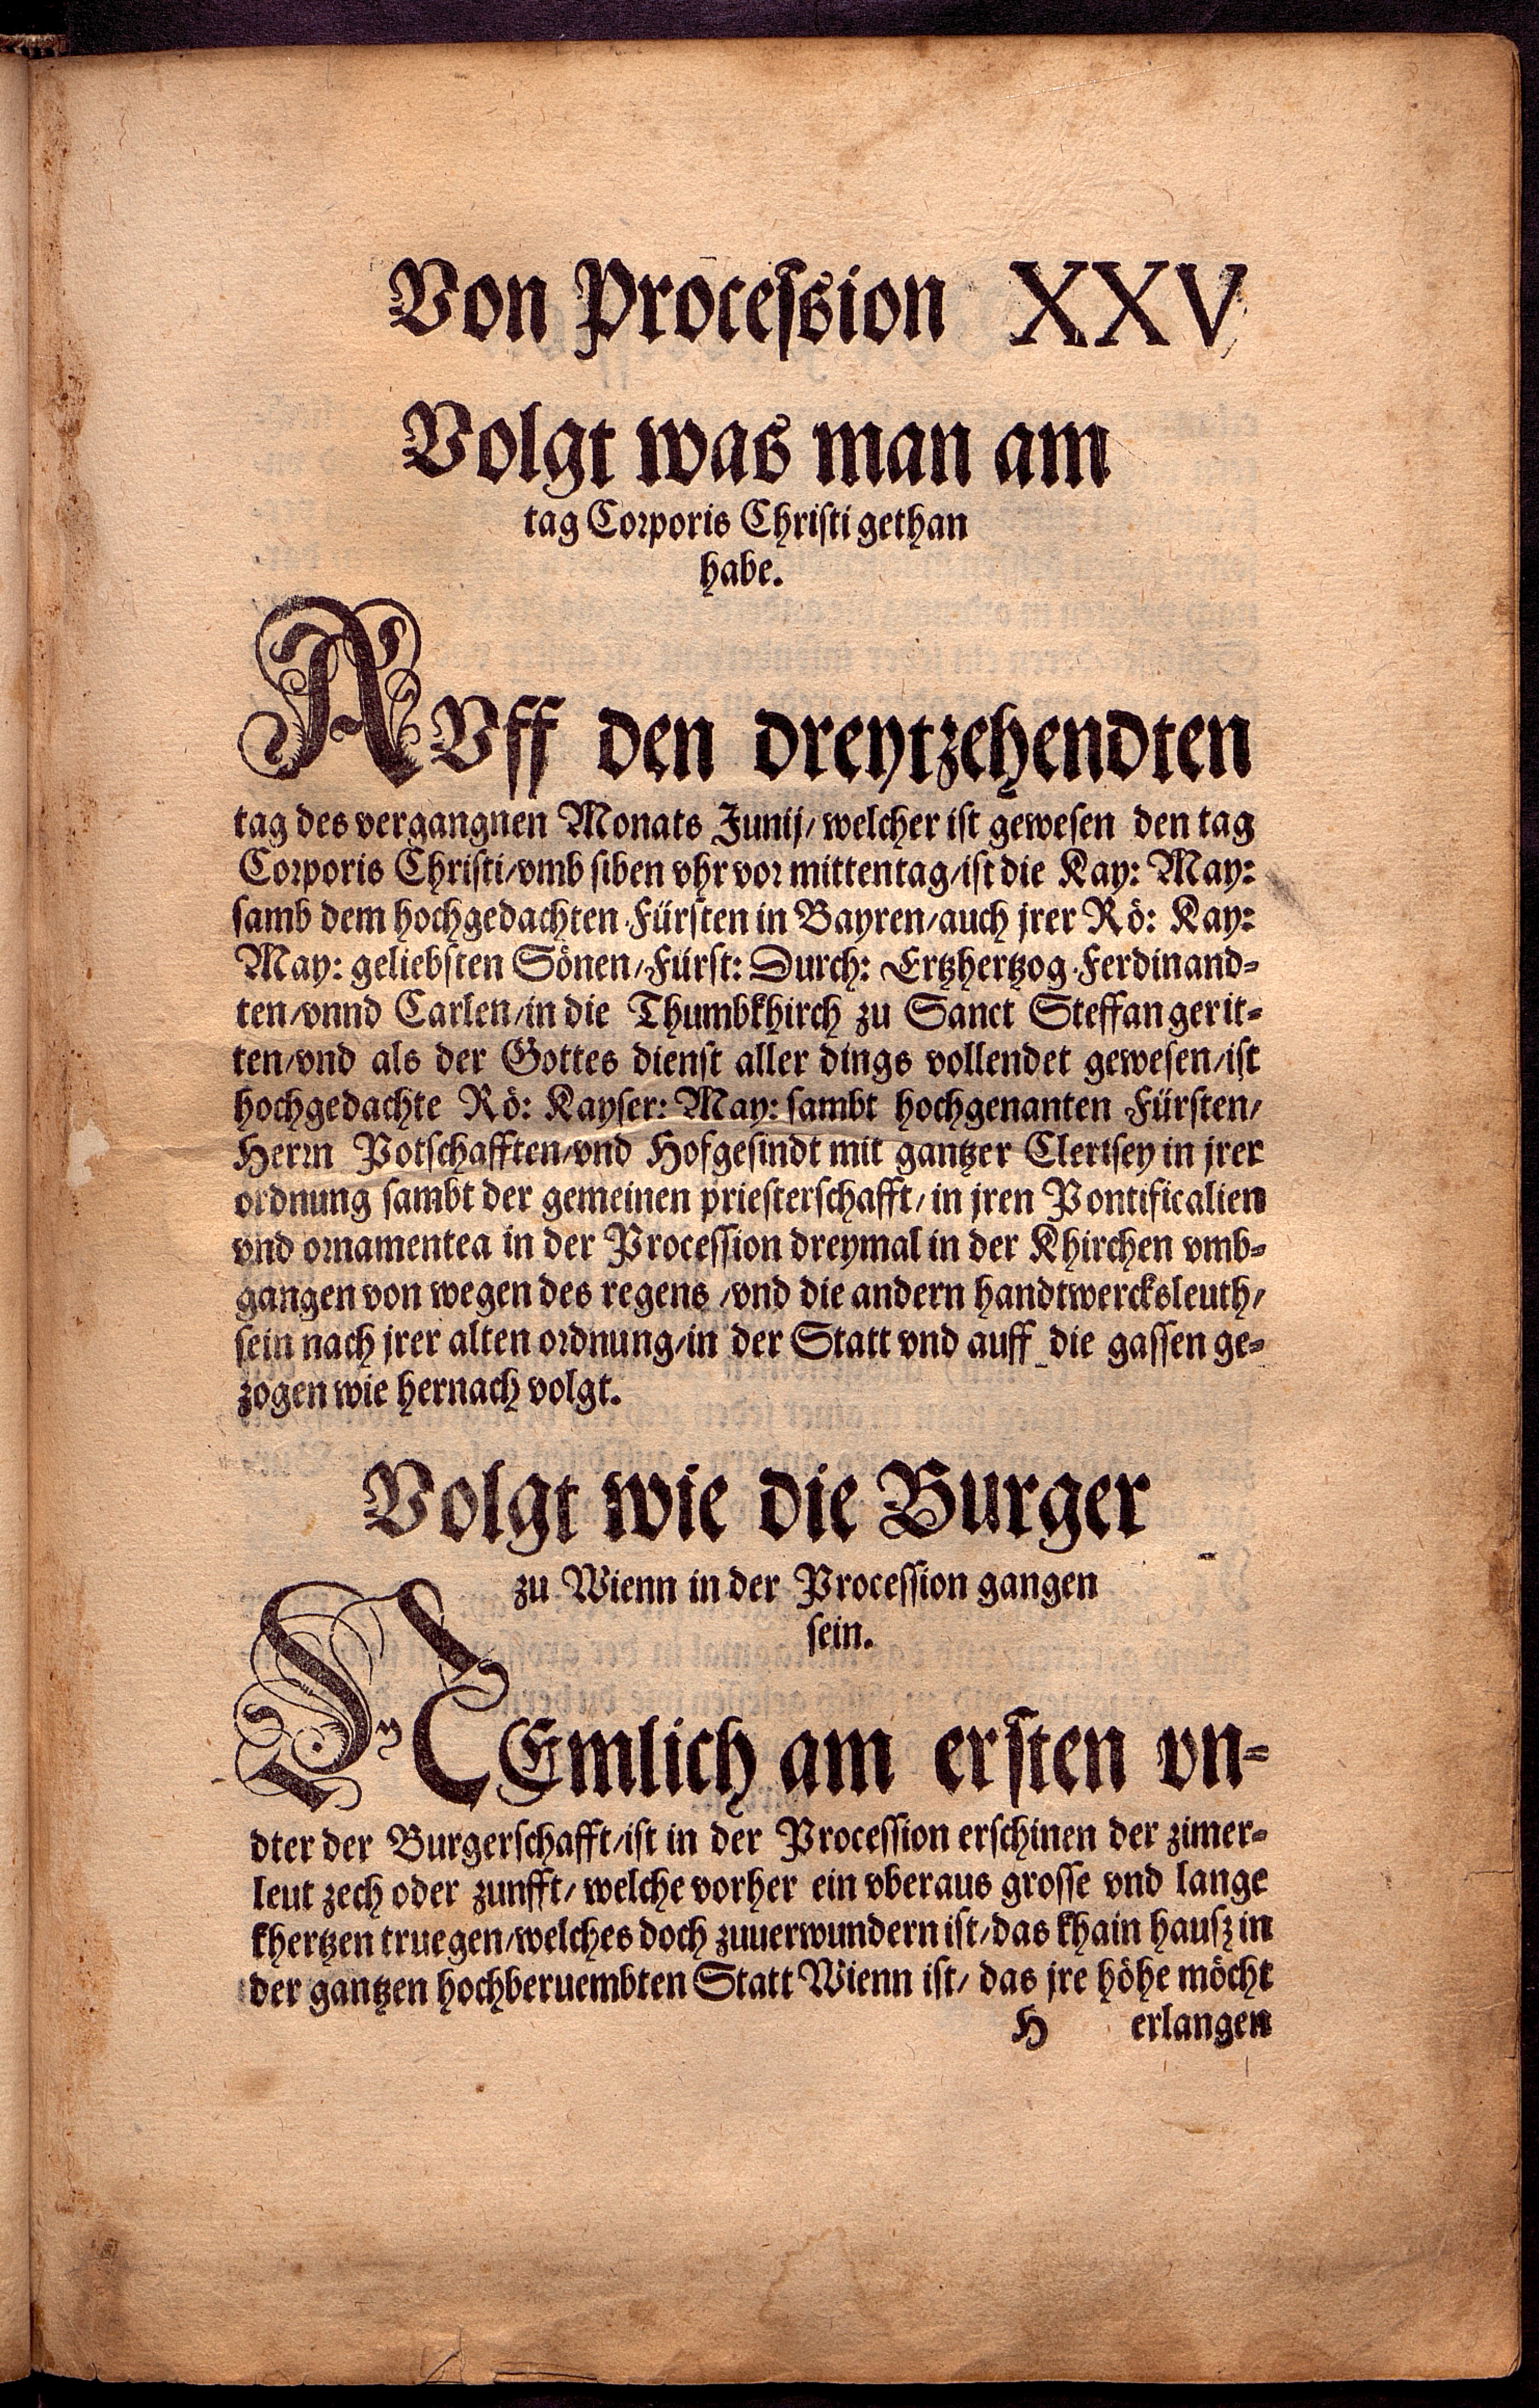 Von Procession XXV
Volgt was man am
tag Corporis Christi gethan
habe.
AVff den dreytzehendten
tag des vergangnen Monats Junij/ welcher ist gewesen den tag
Corporis Christi/vmb siben vhr vor mittentag/ist die Kay: May:
samb dem hochgedachten Fürsten in Bayren/auch jrer Rö: Kay:
May: geliebsten Sönen/Fürst: Durch: Ertzhertzog Ferdinand-
ten/vnnd Carlen/in die Thumbkhirch zu Sanct Steffan gerit-
ten/vnd als der Gottes dienst aller dings vollendet gewesen/ist
hochgedachte Rö: Kayser: May: sambt hochgenanten Fürsten/
Herrn Potschafften/vnd Hofgesindt mit gantzer Clerisey in jrer
ordnung sambt der gemeinen priesterschafft/ in jren Pontificalien
vnd ornamentea in der Procession dreymal in der Khirchen vmb-
gangen von wegen des regens /vnd die andern handtwercksleuth/
sein nach jrer alten ordnung/in der Statt vnd auff die gassen ge-
zogen wie hernach volgt.
Volgt wie die Burger
zu Wienn in der Procession gangen
sein.
NEmlich am ersten vn-
dter der Burgerschafft/ist in der Procession erschinen der zimer-
leut zech oder zunfft/ welche vorher ein vberaus grosse vnd lange
khertzen truegen/welches doch zuuerwundern ist/das khain hausz in
der gantzen hochberuembten Statt Wienn ist/ das jre höhe möcht
H erlangen